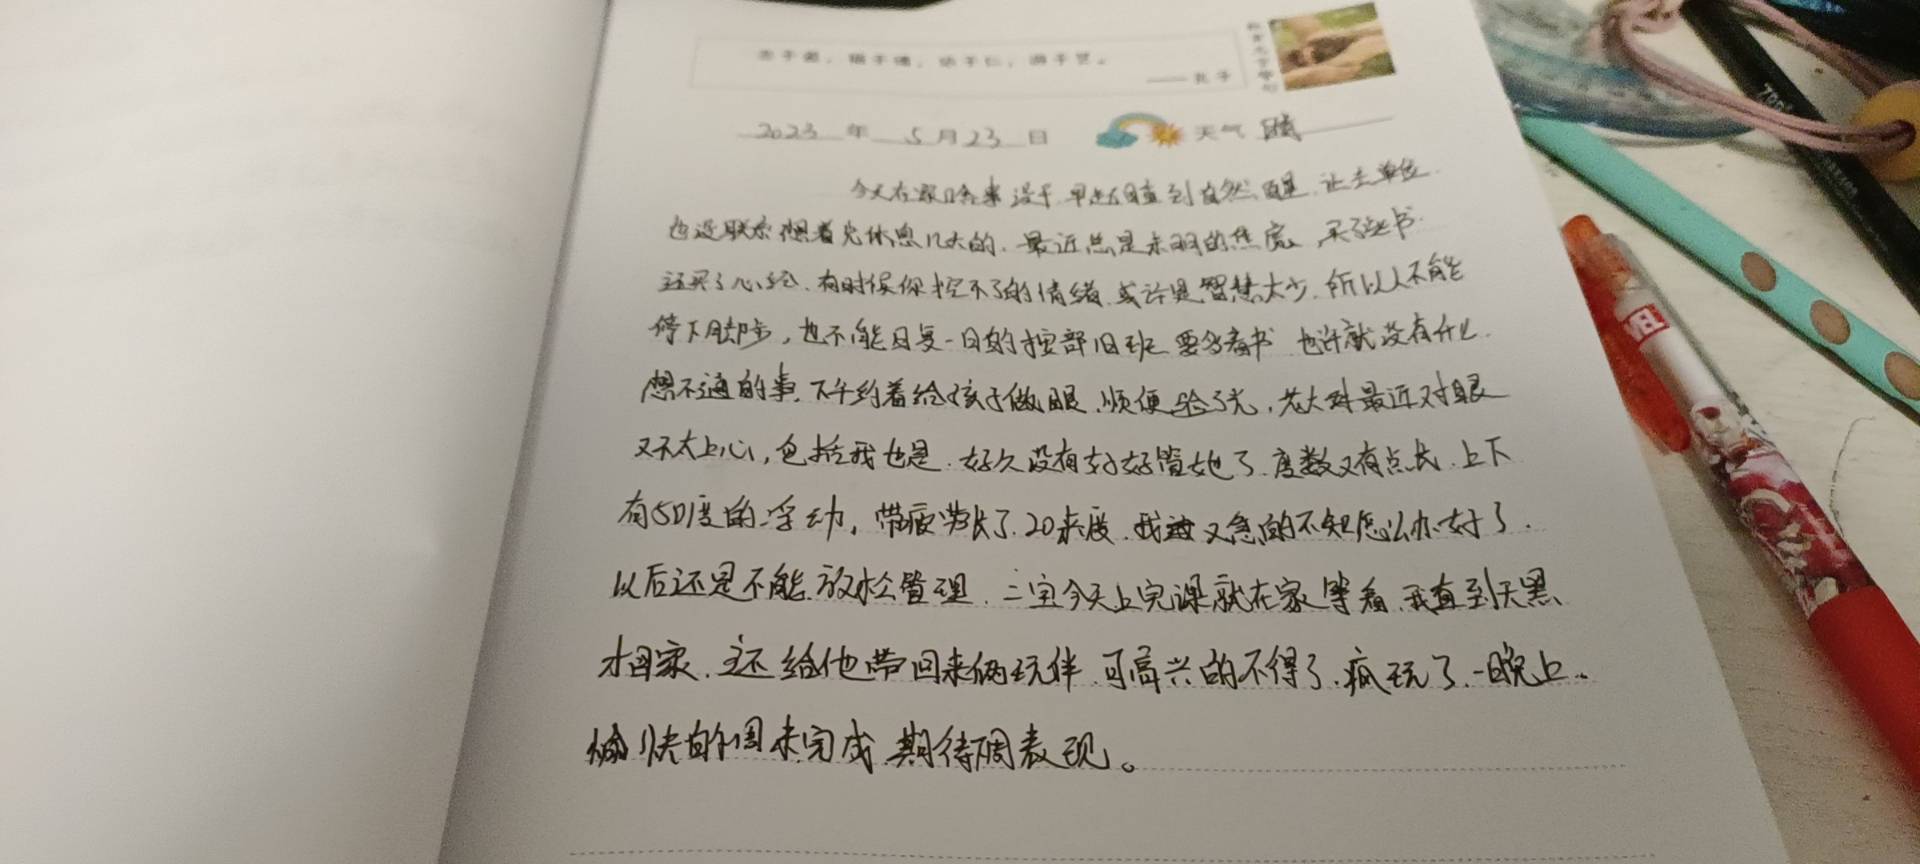 志于道，据于德，依于仁，游于艺。
——孔子
2023年5月23日 天气 晴
今天在家啥事没干.早起睡直到自然醒.让去单位
也没联系想着先休息几天的.最近总是未明的焦虑,买了些书
还买了心经.有时候你控不了的情绪.或许是智慧太少.所以人不能
停下脚步,也不能日复一日的按部旧班 要多看书 也许就没有什么
想不通的事.下午约着给孩子做眼.顺便验了光,老大 最近对眼
又不太上心,包括我也是.好久没有好好管她了.度数又有点长.上下
有50度的浮动,带疲劳长了.20来度.我 又急的不知怎么办好了.
以后还是不能放松管理.三宝今天上完课就在家等着.我直到天黑
才回家.还给他带回来俩玩伴.可高兴的不得了.疯玩了.一晚上。
愉快的周末完成.期待 周表现。
VEL